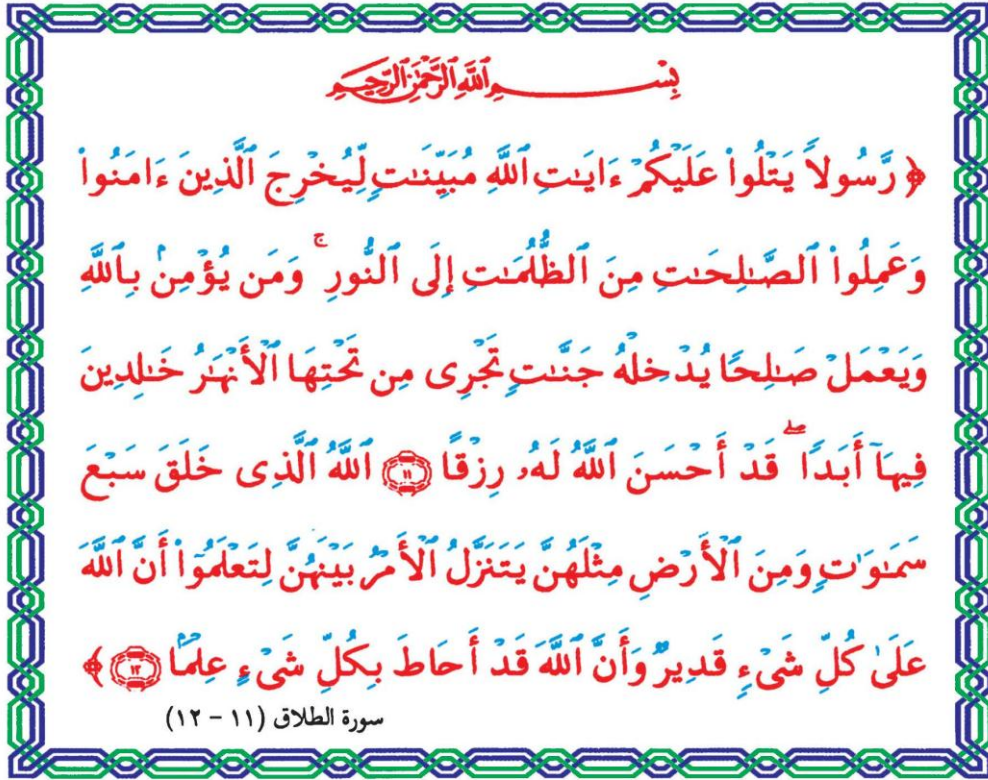 بِسْمِ ٱللَّهِ ٱلرَّحْمَٰنِ ٱلرَّحِيمِ
﴿ رَّسُولًا يَتْلُوا۟ عَلَيْكُمْ ءَايَـٰتِ ٱللَّهِ مُبَيِّنَـٰتٍ لِّيُخْرِجَ ٱلَّذِينَ ءَامَنُوا۟
وَعَمِلُوا۟ ٱلصَّـٰلِحَـٰتِ مِنَ ٱلظُّلُمَـٰتِ إِلَى ٱلنُّورِ ۚ وَمَن يُؤْمِنۢ بِٱللَّهِ
وَيَعْمَلْ صَـٰلِحًا يُدْخِلْهُ جَنَّـٰتٍ تَجْرِى مِن تَحْتِهَا ٱلْأَنْهَـٰرُ خَـٰلِدِينَ
فِيهَآ أَبَدًا ۖ قَدْ أَحْسَنَ ٱللَّهُ لَهُۥ رِزْقًا ۝١١ ٱللَّهُ ٱلَّذِى خَلَقَ سَبْعَ
سَمَـٰوَٰتٍ وَمِنَ ٱلْأَرْضِ مِثْلَهُنَّ يَتَنَزَّلُ ٱلْأَمْرُ بَيْنَهُنَّ لِتَعْلَمُوٓا۟ أَنَّ ٱللَّهَ
عَلَىٰ كُلِّ شَىْءٍ قَدِيرٌ وَأَنَّ ٱللَّهَ قَدْ أَحَاطَ بِكُلِّ شَىْءٍ عِلْمًۢا ۝١٢ ﴾
سورة الطلاق (١١ - ١٢)